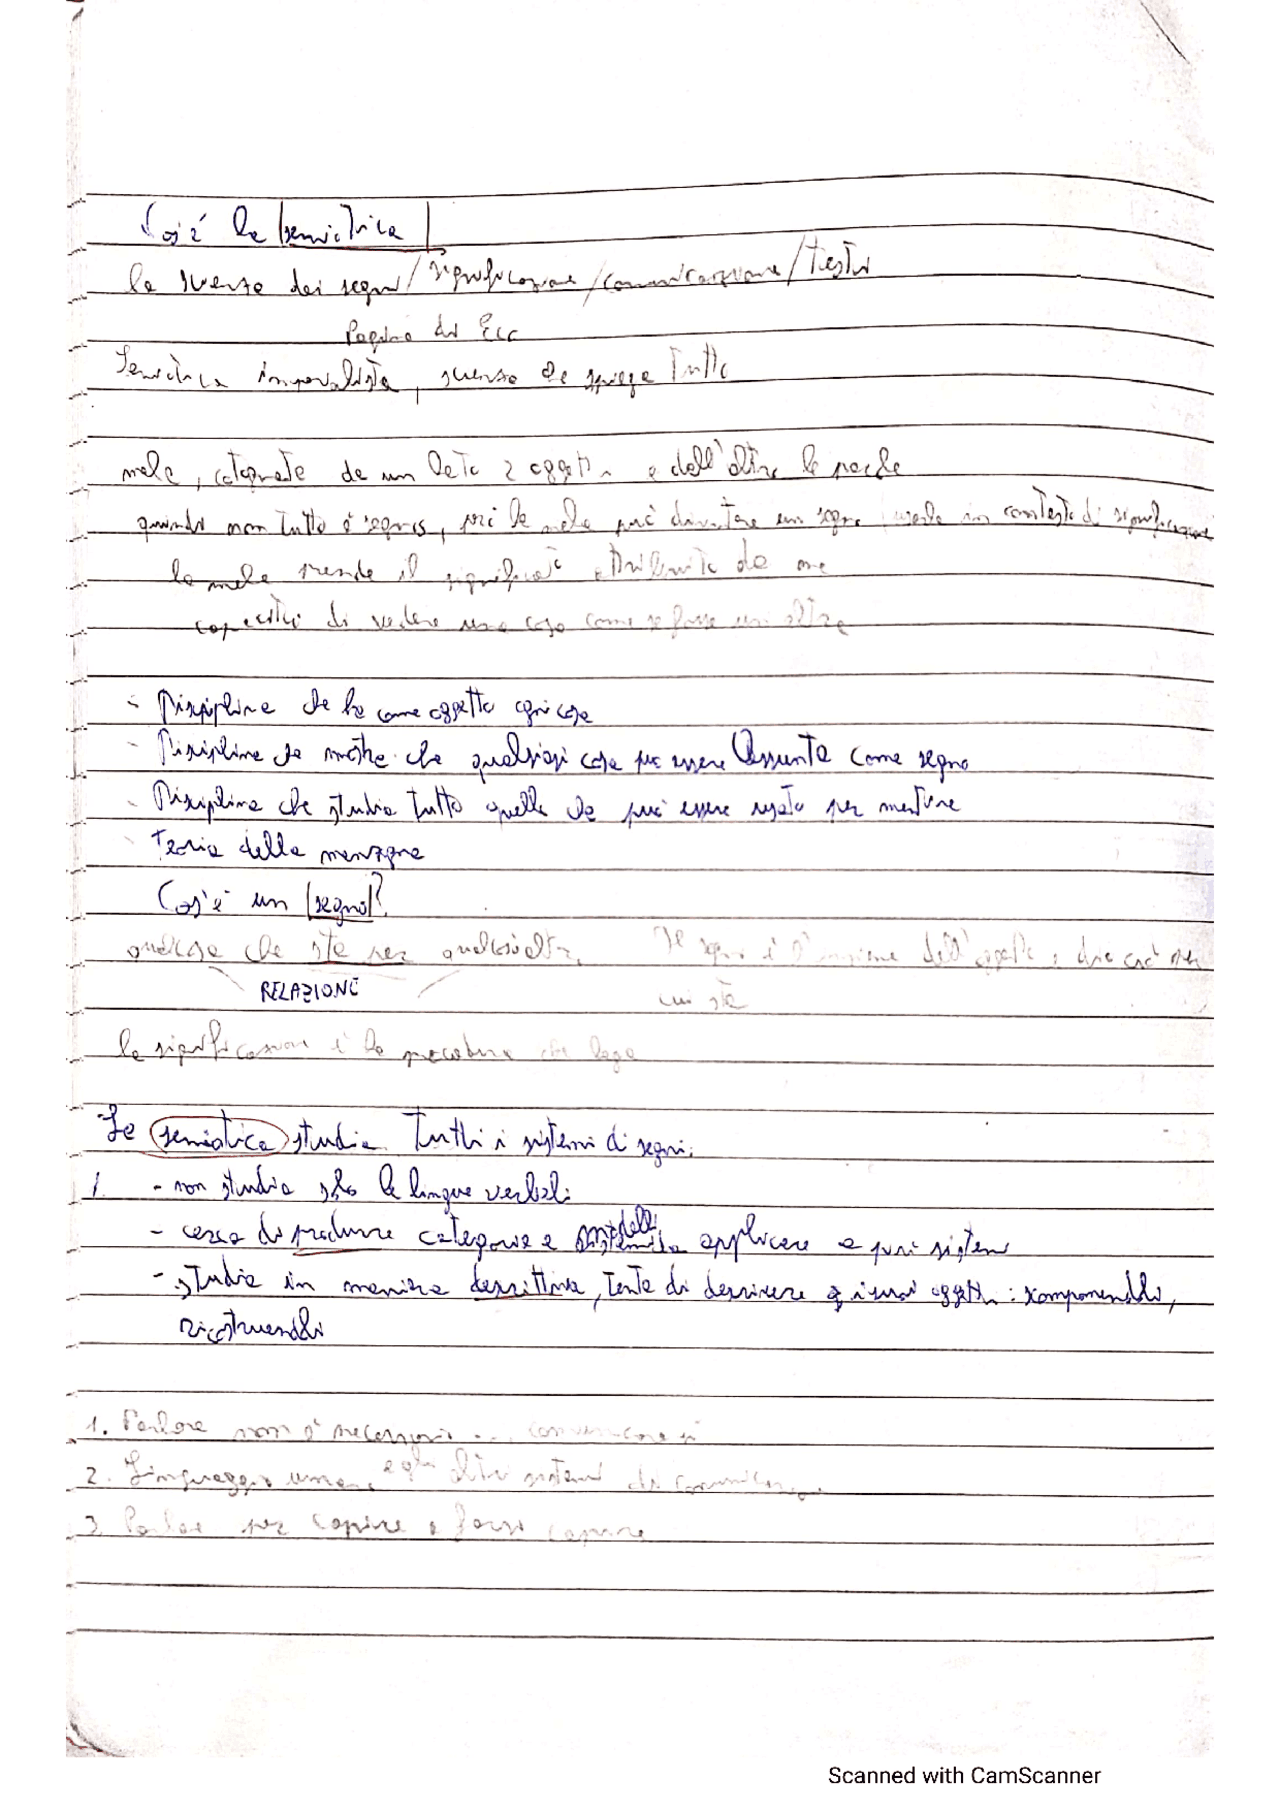 Cos'è la semiotica
la scienza dei segni/significazione/comunicazione/testi
Pagina di Eco
Semiotica imperialista, scienza che spiega tutto
mela, categorie da un lato 2 oggetti e dall'altra le parole
quindi non tutto è segno, però la mela può diventare un segno in contesto di significazione
la mela prende il significato attribuito da me
capacità di vedere una cosa come se fosse un'altra
- Disciplina che ha come oggetto ogni cosa
- Disciplina che mostra che qualsiasi cosa può essere Assunta come segno
- Disciplina che studia tutto quello che può essere usato per mentire
- Teoria della menzogna
Cos'è un segno?
qualcosa che sta per qualcos'altro. Il segno è l'insieme dell'oggetto e di ciò per
RELAZIONE
cui sta
la significazione è la procedura che lega
La semiotica studia Tutti i sistemi di segni:
1. - non studia solo le lingue verbali
- cerca di produrre categorie e modelli da applicare a più sistemi
- studia in maniera descrittiva, tenta di descrivere i suoi oggetti: scomponendoli,
ricostruendoli
1. Parlare non è necessario comunicare
2. Linguaggio umano e gli altri sistemi di comunicazione
3. Parlare per capire e farsi capire
Scanned with CamScanner